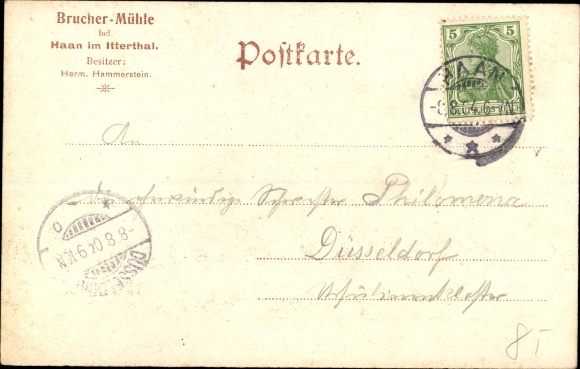 Brucher-Mühle
bei
Haan im Itterthal.
Besitzer:
Herm. Hammerstein.
Postkarte.
5 5
HAAN
-8.8.04.6-7N
An
Ehrwürdige Schwester Philomena
Düsseldorf
8.8.04.
DÜSSELDORF